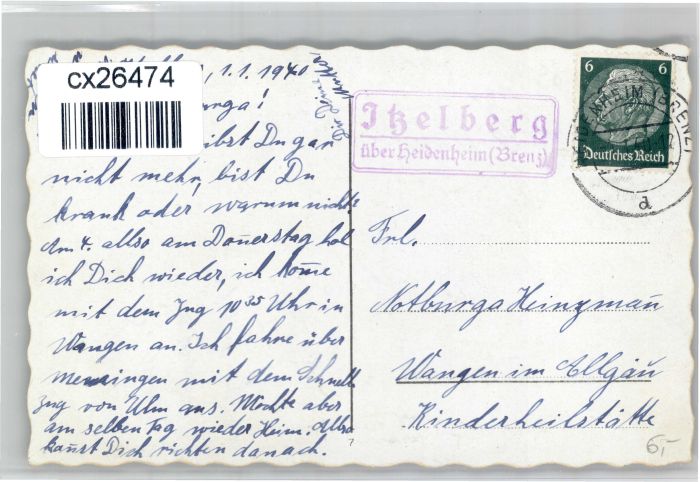 cx26474
1.1.1940
nicht mehr, bist Du
krank oder warum nicht?
Am 4. allso am Don̄erstag hol
ich Dich wieder, ich kom̄e
mit dem Zug 10 35 Uhr in
Wangen an. Ich fahre über
Memingen mit dem Schnell
zug von Ulm aus. Möchte aber
am selben Tag wieder Heim. Allso
kan̄st Dich richten danach.
Itzelberg
über Heidenheim (Brenz)
6 6
Deutsches Reich
d
Frl.
Notburga Heinzman̄
Wangen im Allgäu
Kinderheilstätte
6,-